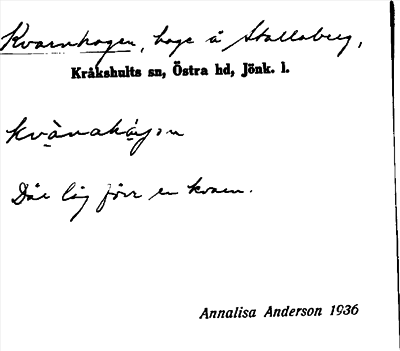 Kvarnhagen, hage å Stalleberg,
Kråkshults sn, Östra hd, Jönk. l.
kvànahágɔn
Där låg förr en kvarn.
Annalisa Anderson 1936